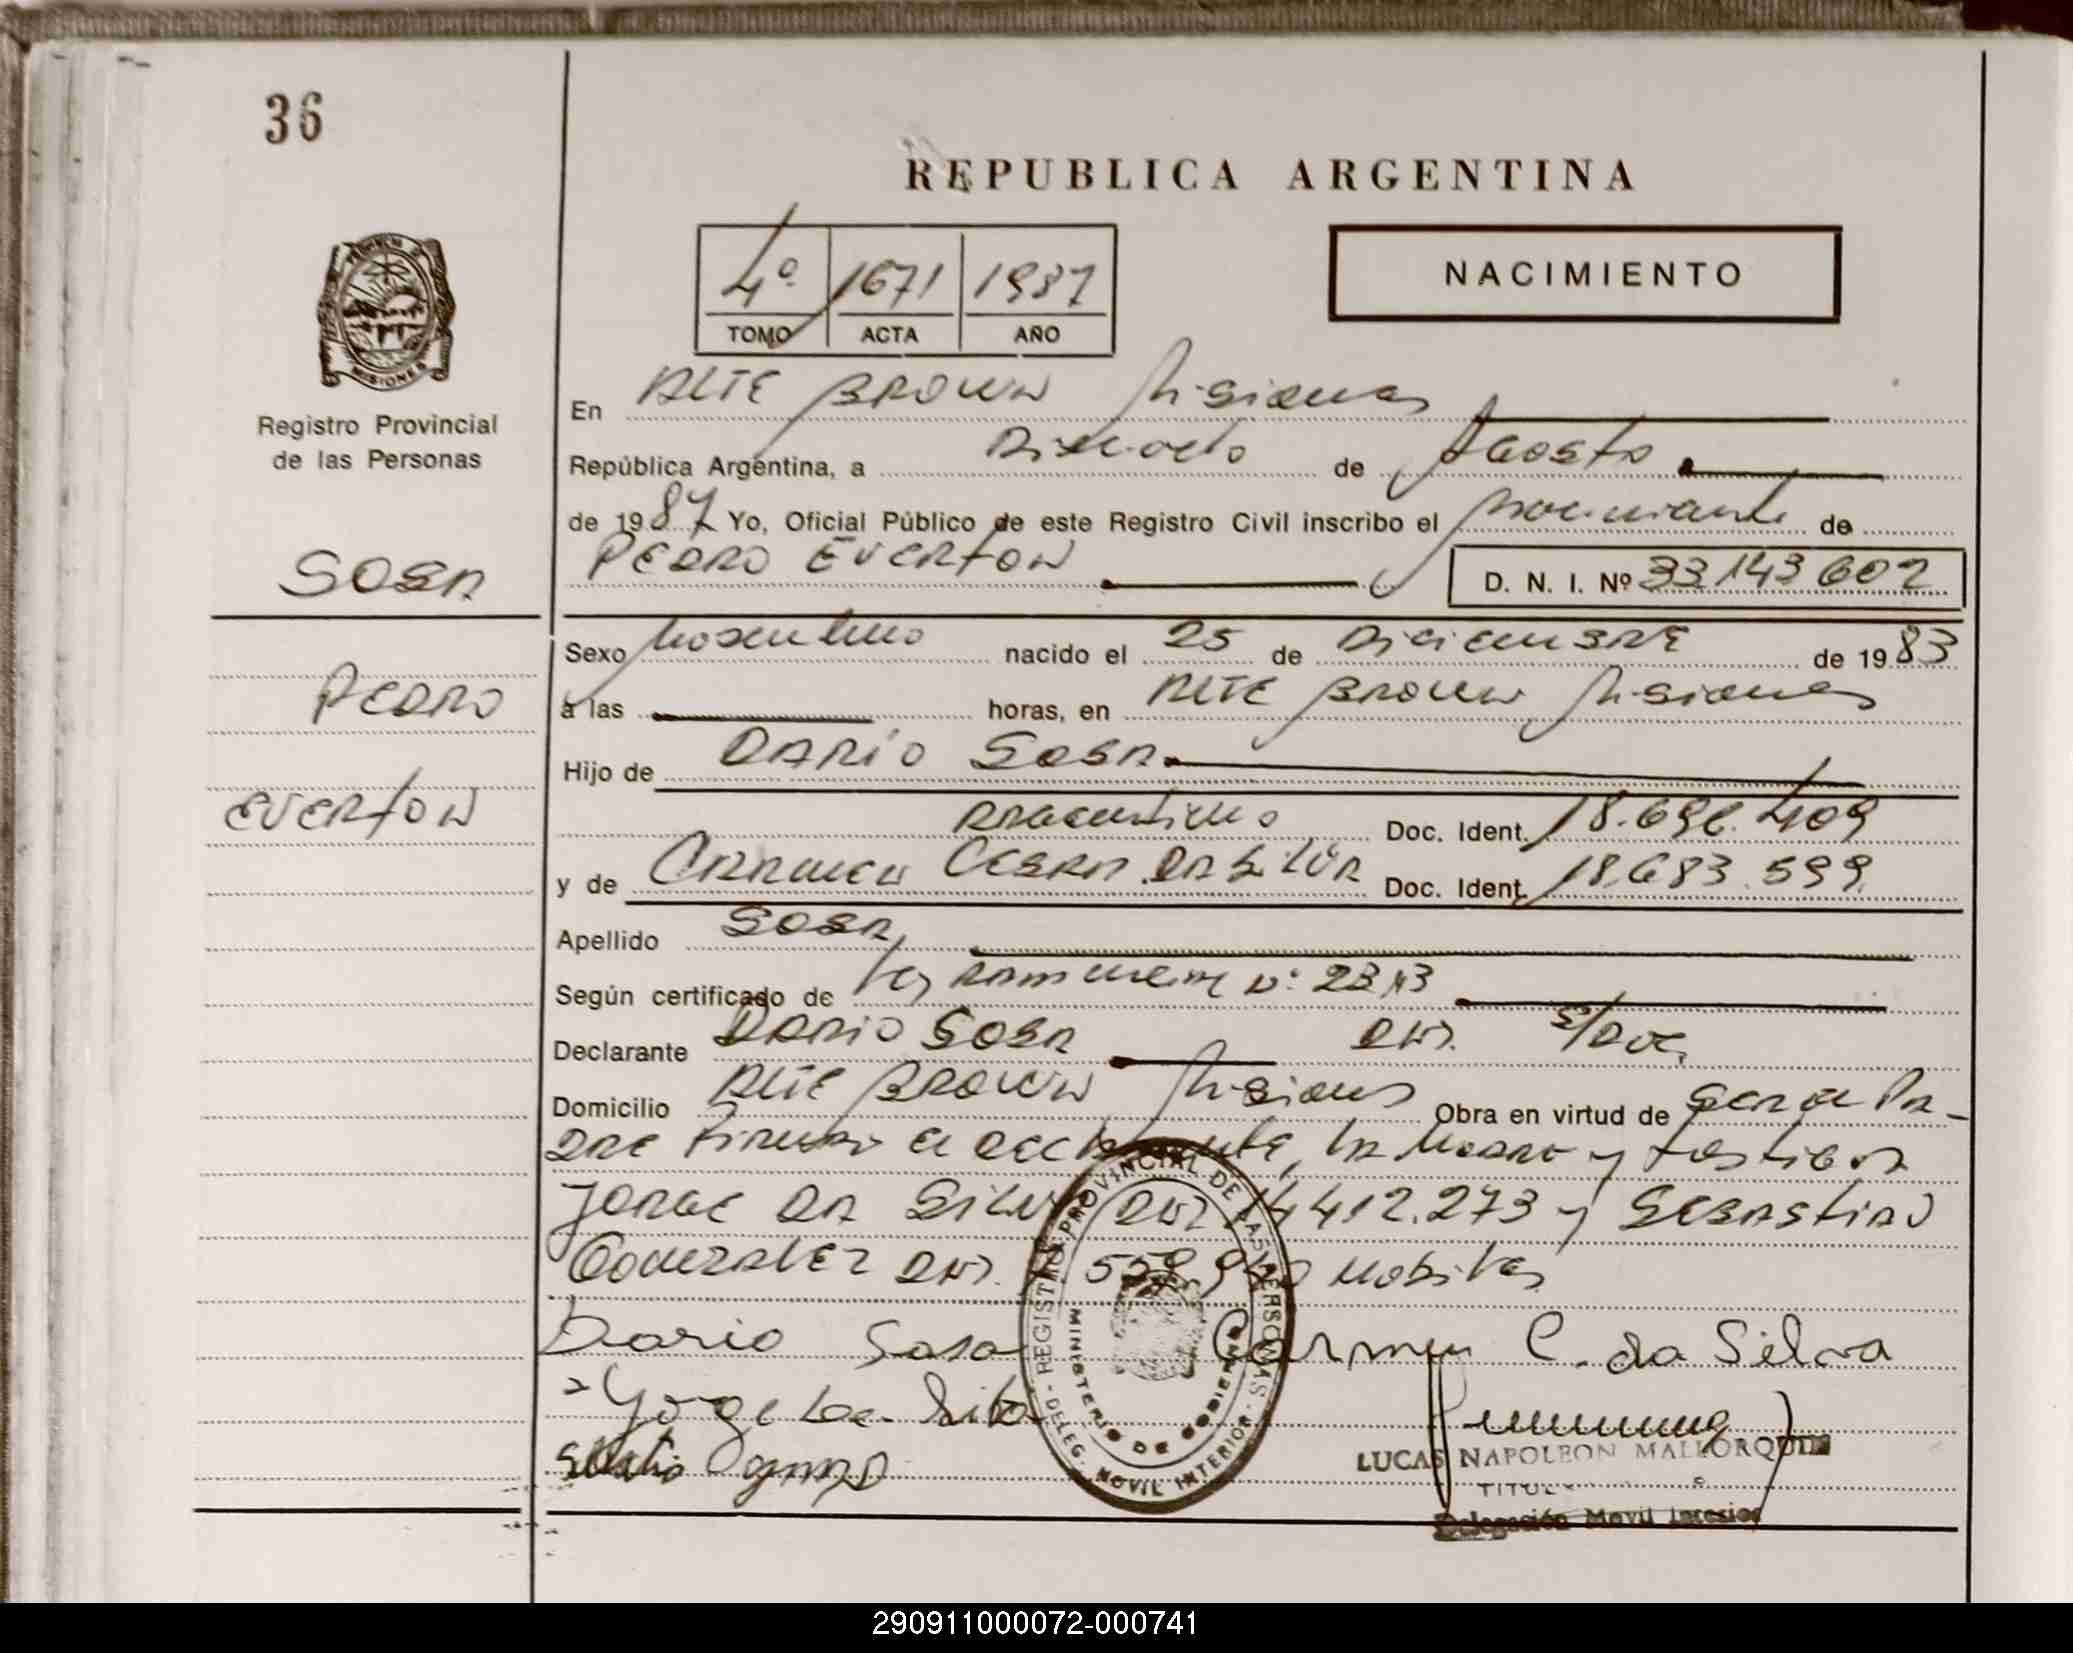 36
REPUBLICA ARGENTINA
4º 1671 1987
TOMO ACTA AÑO
NACIMIENTO
MISIONES
Registro Provincial
de las Personas
SOSA
PEDRO
EVERTON
En ALTE BROWN Misiones
República Argentina, a Dieciocho de Agosto
de 1987 Yo, Oficial Público de este Registro Civil inscribo el nacimiento de
PEDRO EVERTON D. N. I. Nº 33143602
Sexo Masculino nacido el 25 de DICIEMBRE de 1983
a las horas, en ALTE BROWN Misiones
Hijo de DARIO SOSA
Argentino Doc. Ident. 18.696.409
y de CARMEN DA SILVA Doc. Ident. 18.683.599
Apellido SOSA
Según certificado de N° 23
Declarante DARIO SOSA DNI. S/DOC.
Domicilio ALTE BROWN Misiones Obra en virtud de SER EL PA-
DRE Firman el declarante, la Madre y testigos
JORGE DA SILVA DNI 14.412.273 y SEBASTIAO
GONZALEZ DNI. 559 Hábiles
Dario Sosa Carmen C. da Silva
Jorge Da Silva
REGISTRO PROVINCIAL DE LAS PERSONAS
MINISTERIO DE GOBIERNO
DELEG. MOVIL INTERIOR
LUCAS NAPOLEON MALLORQUIN
Delegación Movil Interior
290911000072-000741